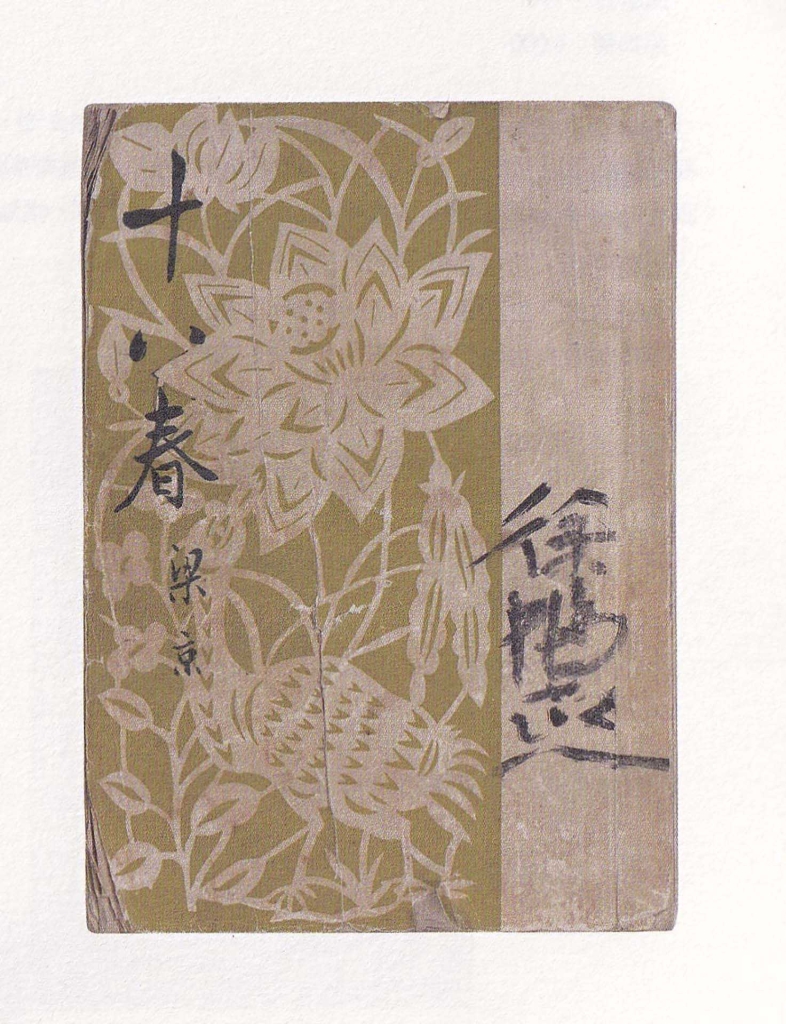 十八春
梁京
徐